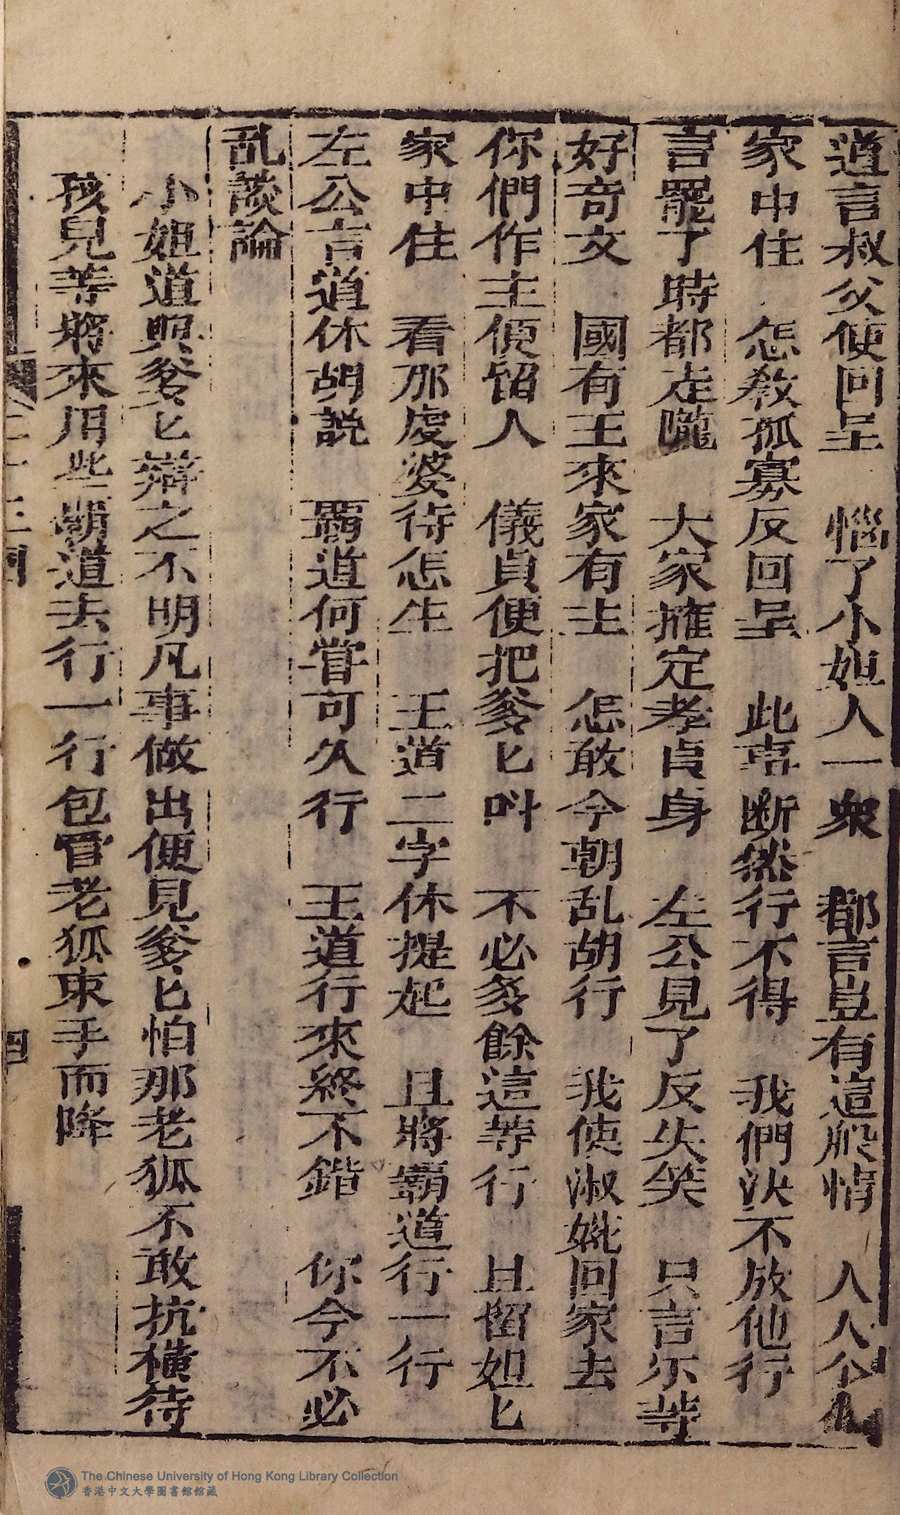 道言叔父使回呈　惱了小姐人一衆　都言豈有這般情　人人公
家中住　怎教孤寡反回呈　此事断然行不得　我們决不放他行
言罷了時都走嚨　大家擁定孝貞身　左公見了反失笑　只言尔等
好奇文　國有王來家有主　怎敢今朝乱胡行　我使淑姚回家去
你們作主便留人　儀貞便把爹匕呌　不必多餘這等行　且留姐匕
家中住　看那虔婆待怎生　王道二字休提起　且將霸道行一行
左公言道休胡説　覇道何甞可久行　王道行來終不錯　你今不必
乱談論
小姐道與爹匕辯之不明凡事做出便見爹匕怕那老狐不敢抗横待
孩兒等將來用些霸道去行一行包管老狐束手而降
二十三回
四
The Chinese University of Hong Kong Library Collection
香港中文大學圖書館館藏